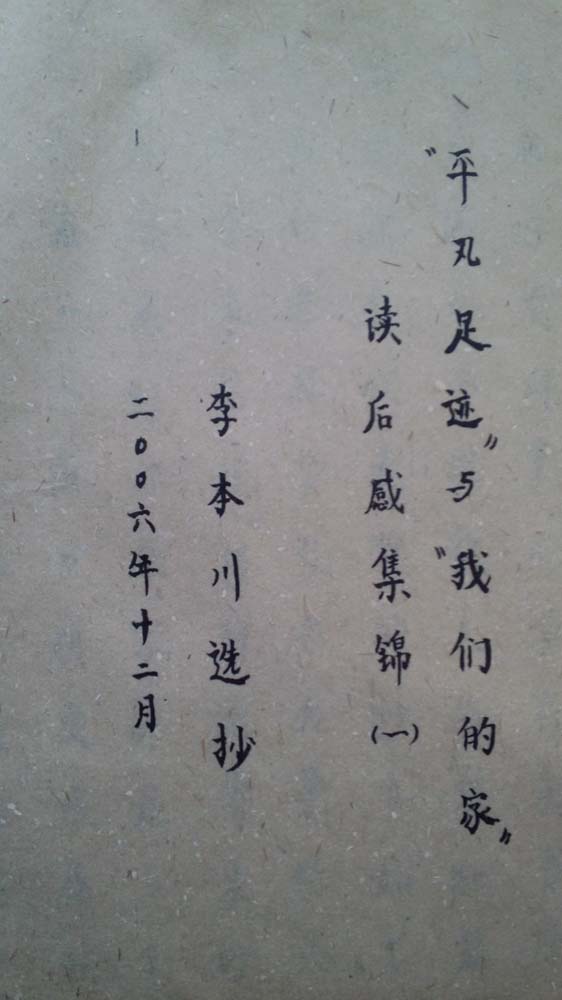 “平凡足迹”与“我们的家”
读后感集锦(一)
李本川选抄
二00六年十二月